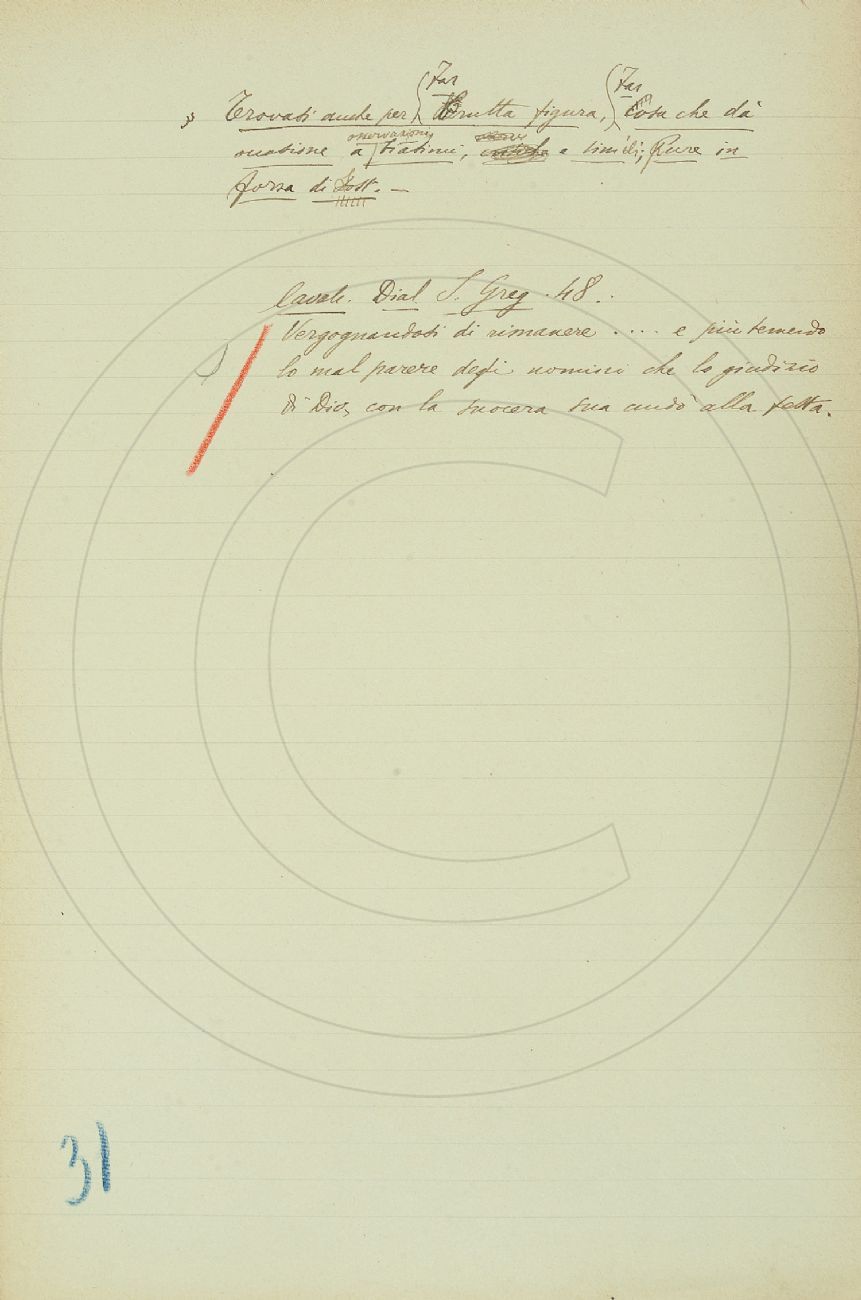 Trovasi anche per Far Brutta figura, Far Cosa che dà
occasione a osservazioni, biasimi, e simili; Pure in
forza di Sost. —
Cavalc. Dial. S. Greg. 48.
Vergognandosi di rimanere ..... e più temendo
lo mal parere degli uomini che lo giudizio
di Dio, con la suocera sua andò alla festa.
31